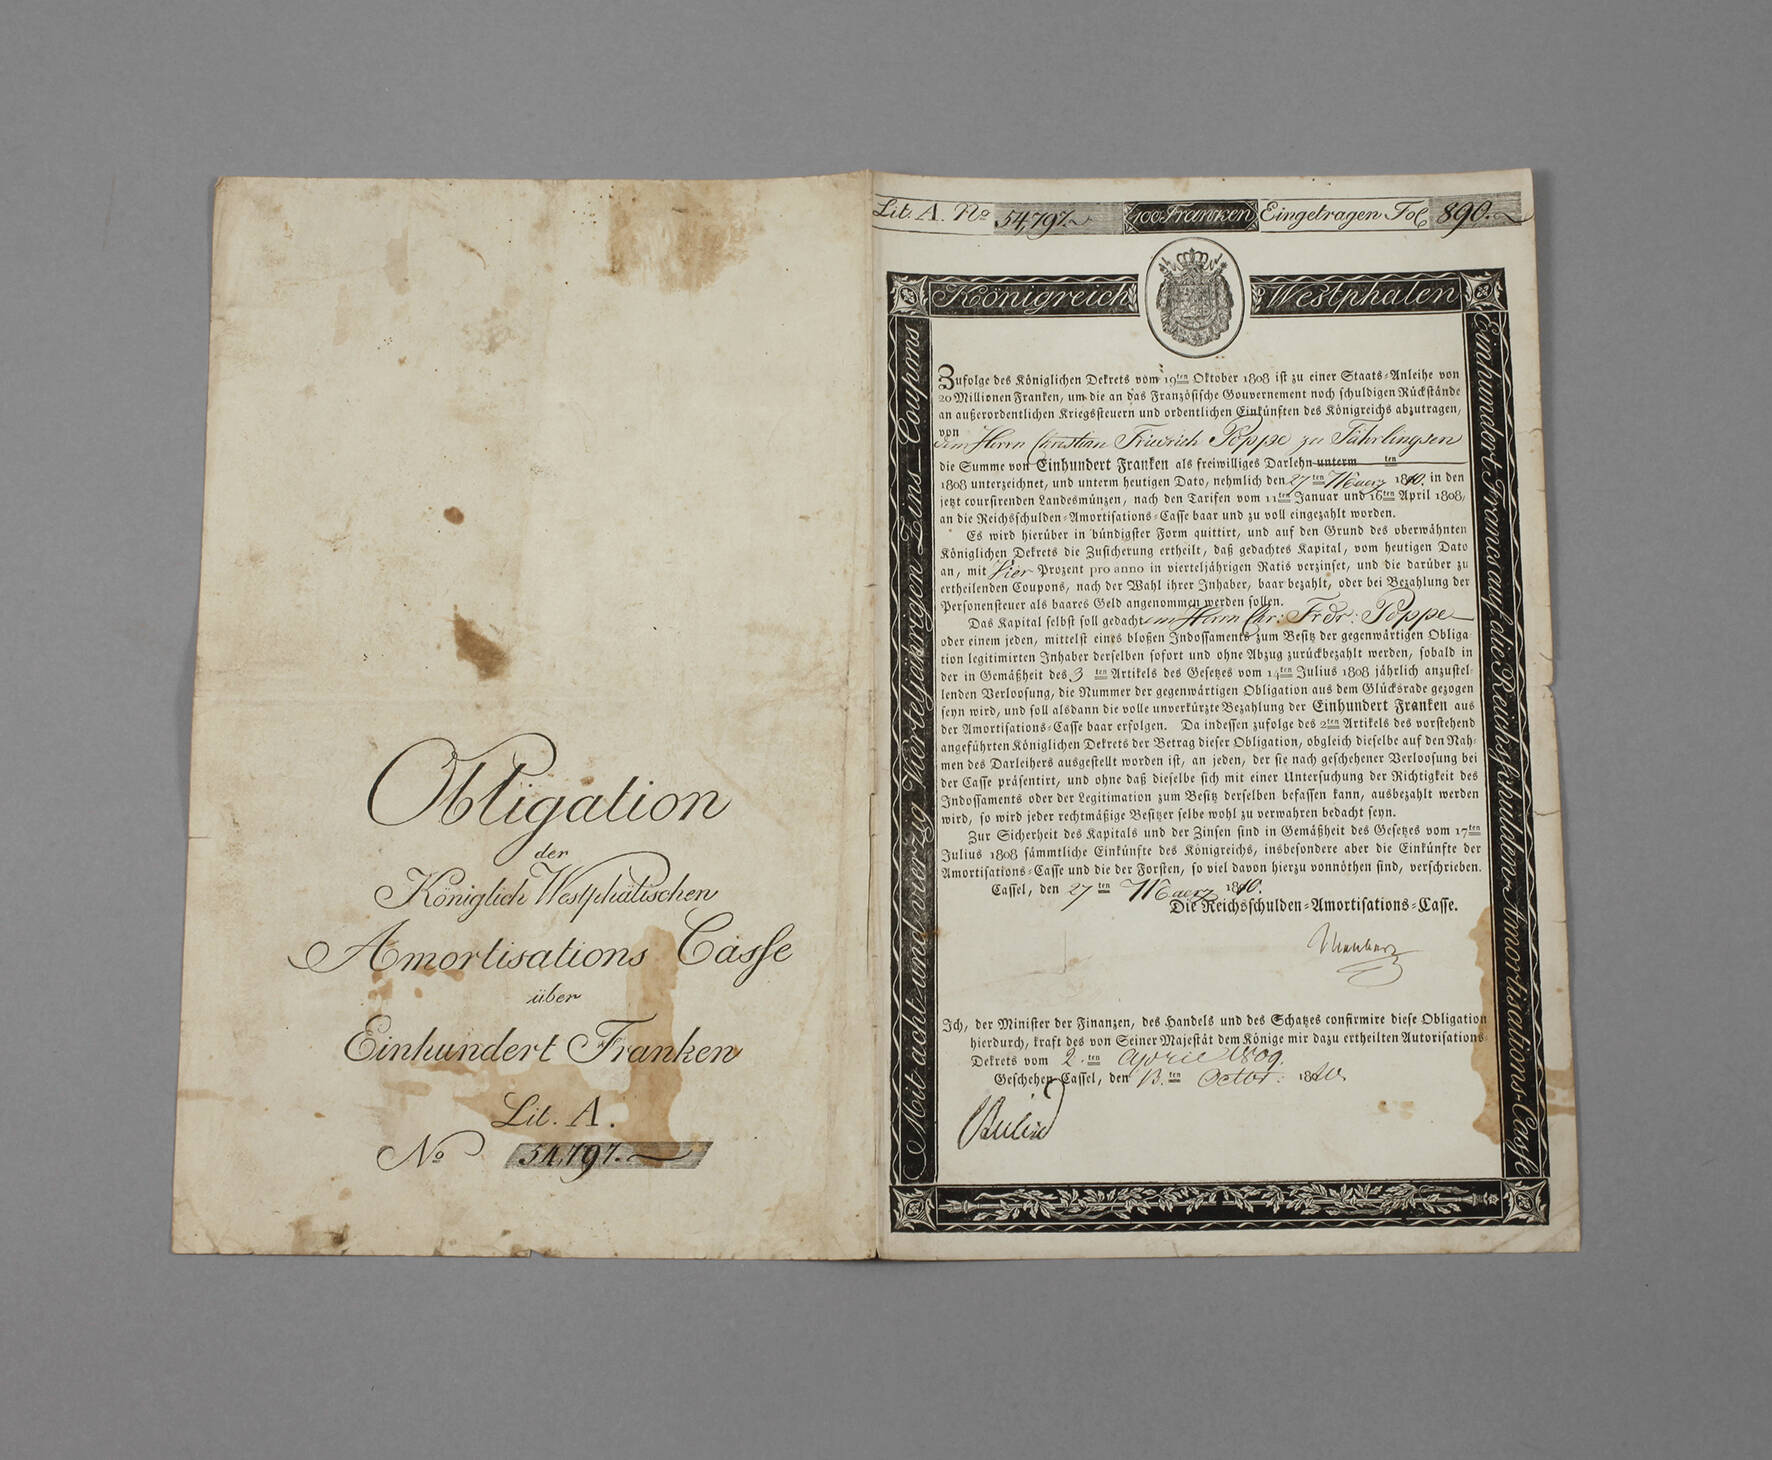 Obligation
der
Königlich Westphälischen
Amortisations Casse
über
Einhundert Franken
Lit. A.
No 54,797.
Lit. A. No 54,797. 100 Franken Eingetragen Fol 890.
Königreich Westphalen
Mit acht und vierzig Vierteljährigen Zins Coupons
Einhundert Francs auf die Reichsschulden-Amortisations-Casse
Zufolge des Königlichen Dekrets vom 19ten Oktober 1808 ist zu einer Staats-Anleihe von
20 Millionen Franken, um die an das Französische Gouvernement noch schuldigen Rückstände
an außerordentlichen Kriegssteuern und ordentlichen Einkünften des Königreichs abzutragen,
von
dem Herrn Christian Friedrich Poppe zu Fährlingsen
die Summe von Einhundert Franken als freiwilliges Darlehn unterm ten
1808 unterzeichnet, und unterm heutigen Dato, nehmlich den 27ten Maerz 1810. in den
jetzt coursirenden Landesmünzen, nach den Tarifen vom 11ten Januar und 16ten April 1808,
an die Reichsschulden-Amortisations-Casse baar und zu voll eingezahlt worden.
Es wird hierüber in bündigster Form quittirt, und auf den Grund des oberwähnten
Königlichen Dekrets die Zusicherung ertheilt, daß gedachtes Kapital, vom heutigen Dato
an, mit Vier Prozent pro anno in vierteljährigen Ratis verzinset, und die darüber zu
ertheilenden Coupons, nach der Wahl ihrer Inhaber, baar bezahlt, oder bei Bezahlung der
Personensteuer als baares Geld angenommen werden sollen.
Das Kapital selbst soll gedachtem Herrn Chr: Frdr: Poppe
oder einem jeden, mittelst eines bloßen Indossaments zum Besitz der gegenwärtigen Obliga-
tion legitimirten Inhaber derselben sofort und ohne Abzug zurückbezahlt werden, sobald in
der in Gemäßheit des 3 ten Artikels des Gesetzes vom 14ten Julius 1808 jährlich anzustel-
lenden Verloosung, die Nummer der gegenwärtigen Obligation aus dem Glücksrade gezogen
seyn wird, und soll alsdann die volle unverkürzte Bezahlung der Einhundert Franken aus
der Amortisations-Casse baar erfolgen. Da indessen zufolge des 2ten Artikels des vorstehend
angeführten Königlichen Dekrets der Betrag dieser Obligation, obgleich dieselbe auf den Nah-
men des Darleihers ausgestellt worden ist, an jeden, der sie nach geschehener Verloosung bei
der Casse präsentirt, und ohne daß dieselbe sich mit einer Untersuchung der Richtigkeit des
Indossaments oder der Legitimation zum Besitz derselben befassen kann, ausbezahlt werden
wird, so wird jeder rechtmäßige Besitzer selbe wohl zu verwahren bedacht seyn.
Zur Sicherheit des Kapitals und der Zinsen sind in Gemäßheit des Gesetzes vom 17ten
Julius 1808 sämmtliche Einkünfte des Königreichs, insbesondere aber die Einkünfte der
Amortisations-Casse und die der Forsten, so viel davon hierzu vonnöthen sind, verschrieben.
Cassel, den 27 ten Maerz 1810.
Die Reichsschulden-Amortisations-Casse.
Ich, der Minister der Finanzen, des Handels und des Schatzes confirmire diese Obligation
hierdurch, kraft des von Seiner Majestät dem Könige mir dazu ertheilten Autorisations-
Dekrets vom 2. ten April 1809.
Geschehen Cassel, den 13. ten Octbr: 1810.